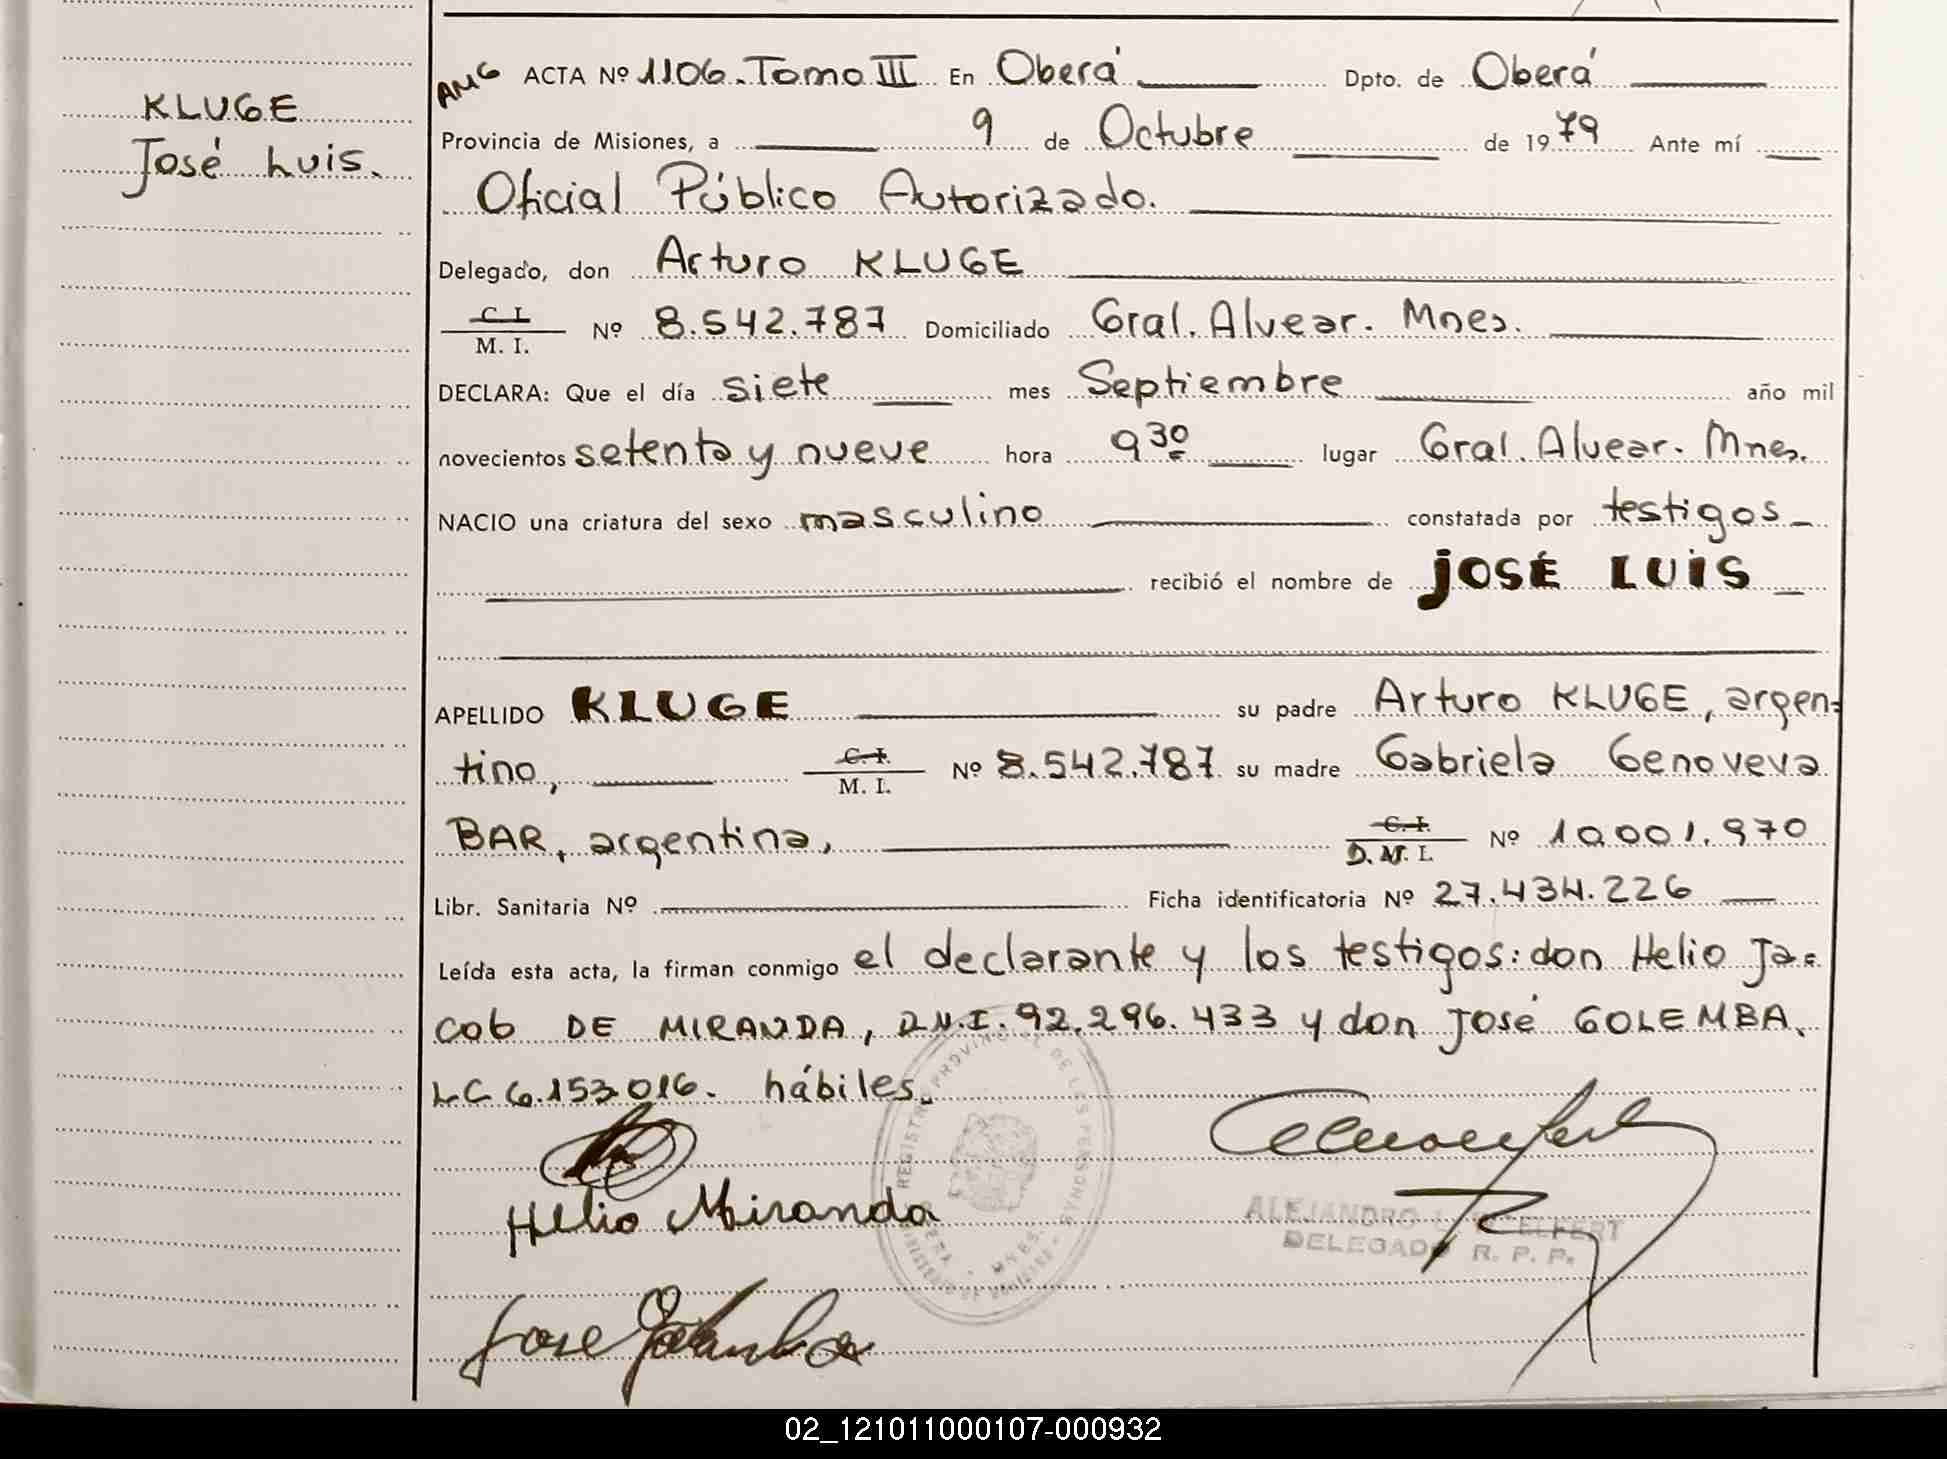 KLUGE
José Luis.
AMG ACTA Nº 1106. Tomo III En Oberá Dpto. de Oberá
Provincia de Misiones, a 9 de Octubre de 1979 Ante mí
Oficial Público Autorizado.
Delegado, don Arturo KLUGE
C. I.
M. I. Nº 8.542.787 Domiciliado Gral. Alvear. Mnes.
DECLARA: Que el día siete mes Septiembre año mil
novecientos setenta y nueve hora 9 30 lugar Gral. Alvear. Mnes.
NACIO una criatura del sexo masculino constatada por testigos
recibió el nombre de JOSÉ LUIS
APELLIDO KLUGE su padre Arturo KLUGE, argen=
tino, C. I. M. I. Nº 8.542.787 su madre Gabriela Genoveva
BAR, argentina, C. I. D. N. I. Nº 10.001.970
Libr. Sanitaria Nº Ficha identificatoria Nº 27.434.226
Leída esta acta, la firman conmigo el declarante y los testigos: don Helio Ja=
cob DE MIRANDA, D.N.I. 92.296.433 y don José GOLEMBA.
LC 6.153.016. hábiles.
Helio Miranda
REGISTRO PROVINCIAL DE LAS PERSONAS
OBERA - MNES.
DELEGADO R. P. P.
Jose Golemba
02_121011000107-000932